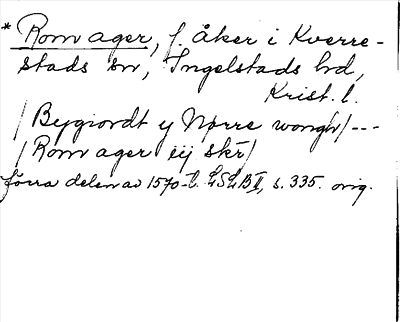 * Rom ager, f. åker i Kverre-
stads sn, Ingelstads hd,
Krist. l.
/ Bygiordt y Nørre wongh /---
/ Rom ager iij skr /
förra delen av 1570-t. LSLB II, s. 335. orig.